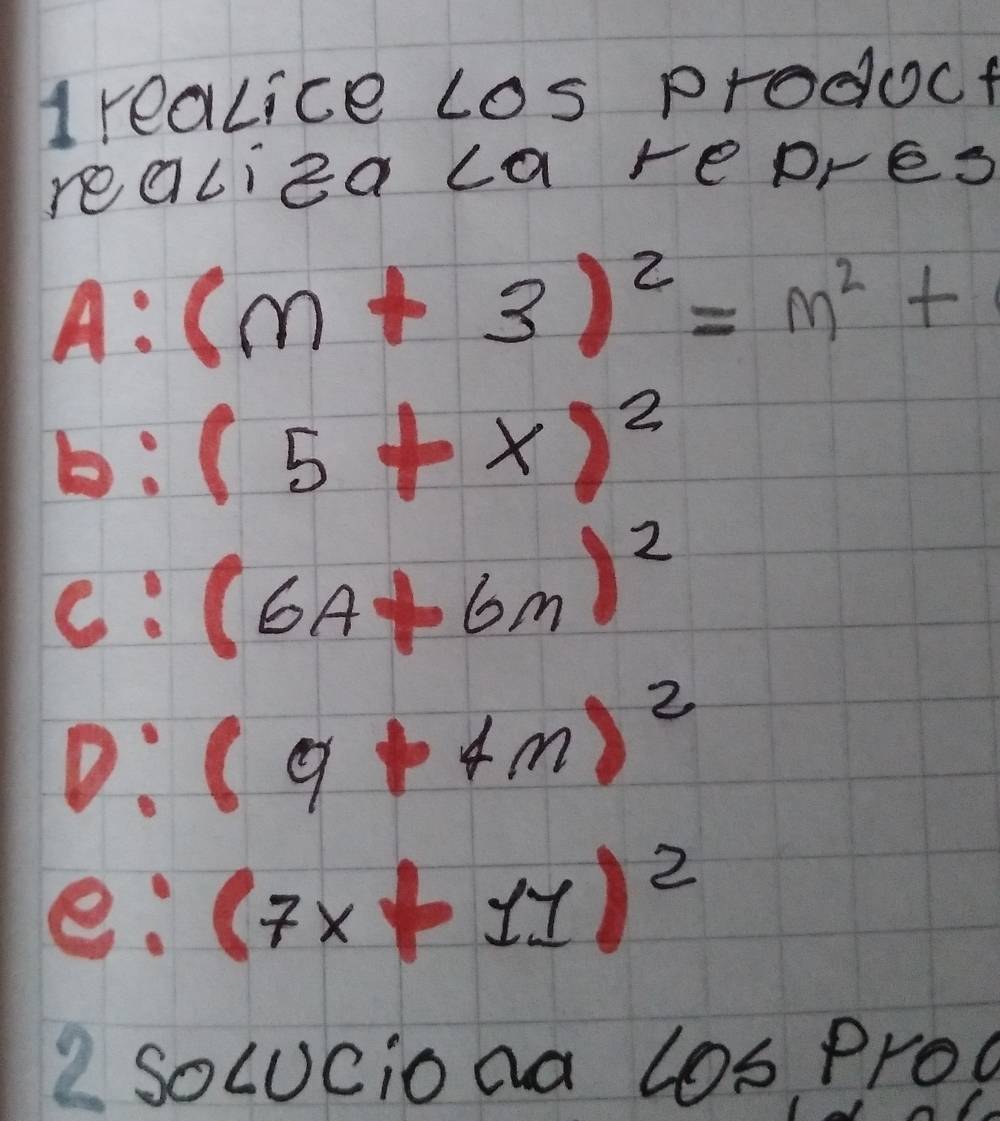 1 realice Los product
realiza La repres
A: (m + 3)² = m² +
b: (5 + x)²
c: (6A + 6m)²
D: (9 + 4m)²
e: (7x + 11)²
2 soLUCiona Los Prod